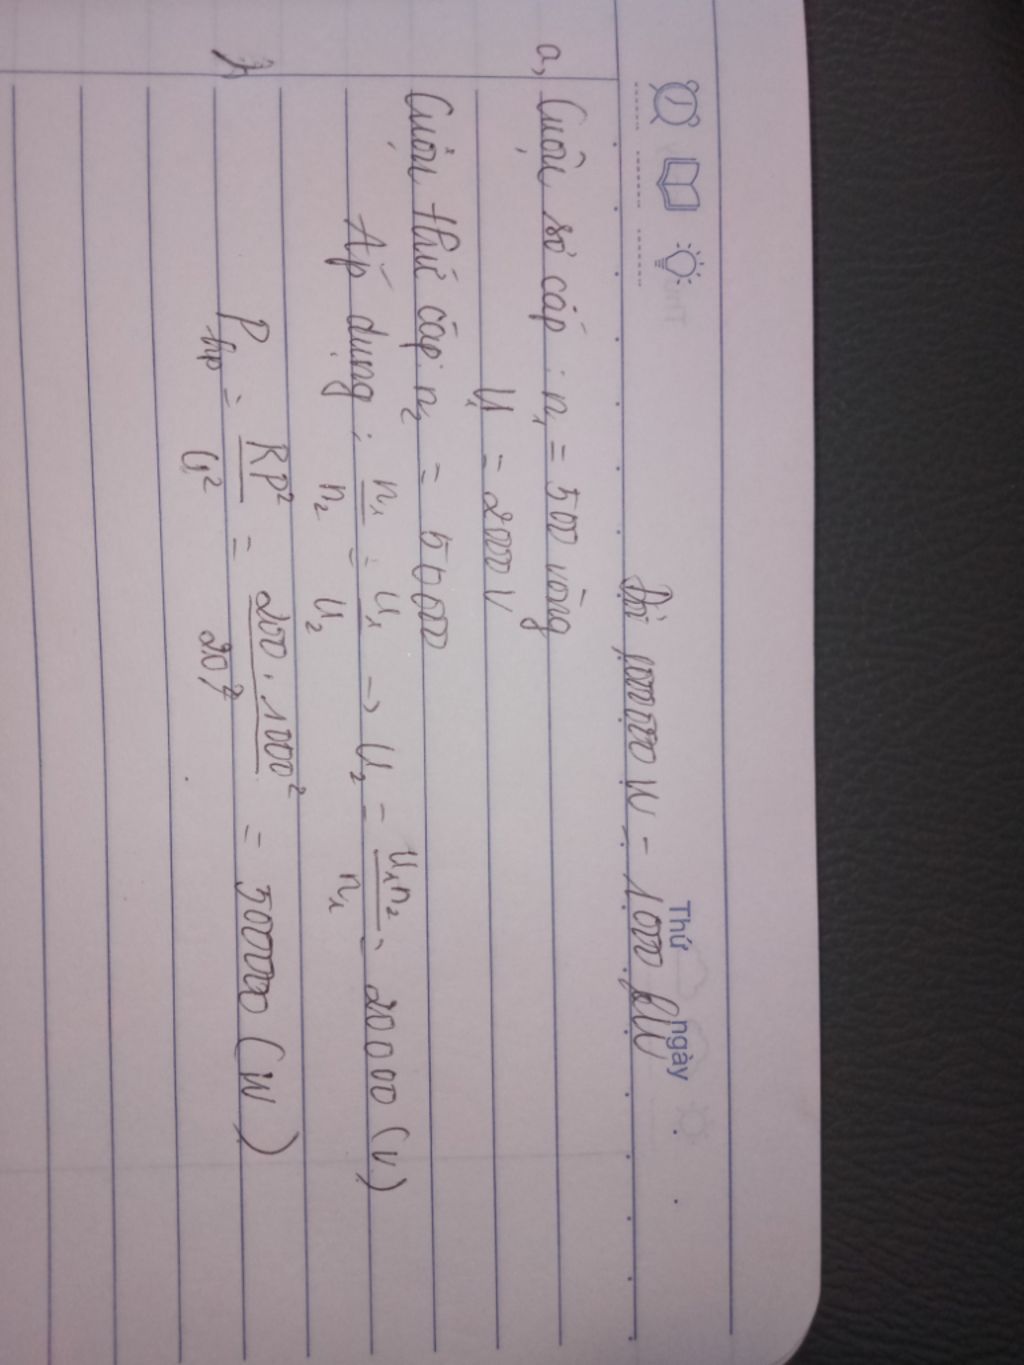 Thứ ngày
Đổi 1000000 W = 1000 kW
a, Cuộn sơ cấp : n₁ = 500 vòng
U₁ = 2000 V
Cuộn thứ cấp: n₂ = 5000
Áp dụng : n₁/n₂ = U₁/U₂ → U₂ = U₁n₂/n₁ = 20000 (V)
P hp = RP²/U² = 200.1000²/20² = 500000 (W)